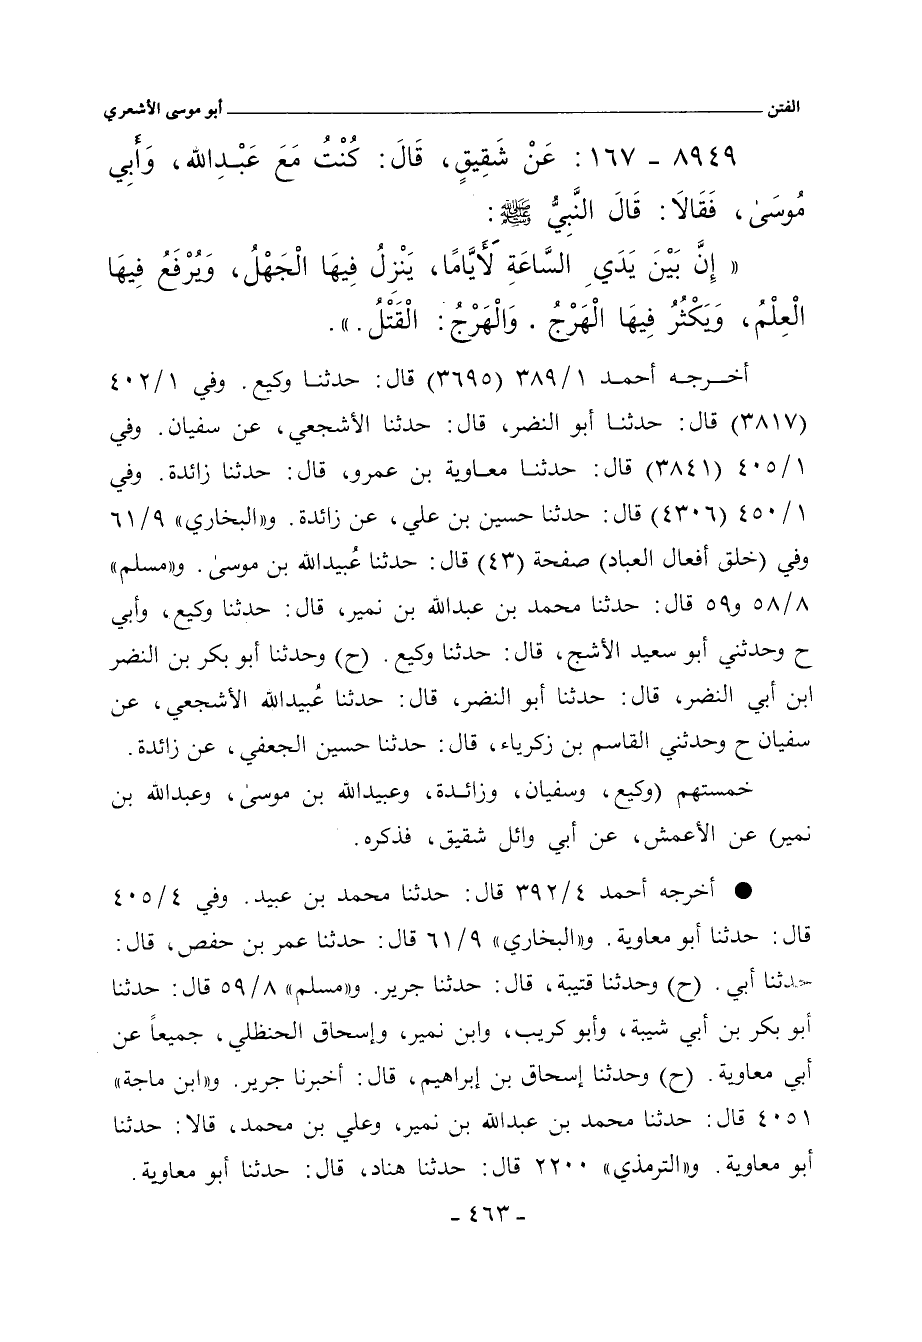 الفتن أبو موسى الأشعري
٨٩٤٩ - ١٦٧ : عَنْ شَقِيقٍ، قَالَ : كُنْتُ مَعَ عَبْدِالله، وَأَبِي
مُوسَىٰ، فَقَالَا : قَالَ النَّبِيُّ ﷺ :
« إِنَّ بَيْنَ يَدَيِ السَّاعَةِ لَأَيَّامًا، يَنْزِلُ فِيهَا الْجَهْلُ، وَيُرْفَعُ فِيهَا
الْعِلْمُ، وَيَكْثُرُ فِيهَا الْهَرْجُ . وَالْهَرْجُ : الْقَتْلُ . ».
أخرجه أحمد ٣٨٩/١ (٣٦٩٥) قال : حدثنا وكيع. وفي ٤٠٢/١
(٣٨١٧) قال : حدثنا أبو النضر، قال : حدثنا الأشجعي، عن سفيان. وفي
٤٠٥/١ (٣٨٤١) قال : حدثنا معاوية بن عمرو، قال : حدثنا زائدة. وفي
٤٥٠/١ (٤٣٠٦) قال : حدثنا حسين بن علي، عن زائدة. و«البخاري» ٦١/٩
وفي (خلق أفعال العباد) صفحة (٤٣) قال : حدثنا عُبيدالله بن موسىٰ. و«مسلم»
٥٨/٨ و٥٩ قال : حدثنا محمد بن عبدالله بن نمير، قال : حدثنا وكيع، وأبي
ح وحدثني أبو سعيد الأشج، قال : حدثنا وكيع. (ح) وحدثنا أبو بكر بن النضر
ابن أبي النضر، قال : حدثنا أبو النضر، قال : حدثنا عُبيدالله الأشجعي، عن
سفيان ح وحدثني القاسم بن زكرياء، قال : حدثنا حسين الجعفي، عن زائدة.
خمستهم (وكيع، وسفيان، وزائدة، وعبيدالله بن موسىٰ، وعبدالله بن
نمير) عن الأعمش، عن أبي وائل شقيق، فذكره.
● أخرجه أحمد ٣٩٢/٤ قال : حدثنا محمد بن عبيد. وفي ٤٠٥/٤
قال : حدثنا أبو معاوية. و«البخاري» ٦١/٩ قال : حدثنا عمر بن حفص، قال :
حدثنا أبي. (ح) وحدثنا قتيبة، قال : حدثنا جرير. و«مسلم» ٥٩/٨ قال : حدثنا
أبو بكر بن أبي شيبة، وأبو كريب، وابن نمير، وإسحاق الحنظلي، جميعاً عن
أبي معاوية. (ح) وحدثنا إسحاق بن إبراهيم، قال : أخبرنا جرير. و«ابن ماجة»
٤٠٥١ قال : حدثنا محمد بن عبدالله بن نمير، وعلي بن محمد، قالا : حدثنا
أبو معاوية. و«الترمذي» ٢٢٠٠ قال : حدثنا هناد، قال : حدثنا أبو معاوية.
- ٤٦٣ -